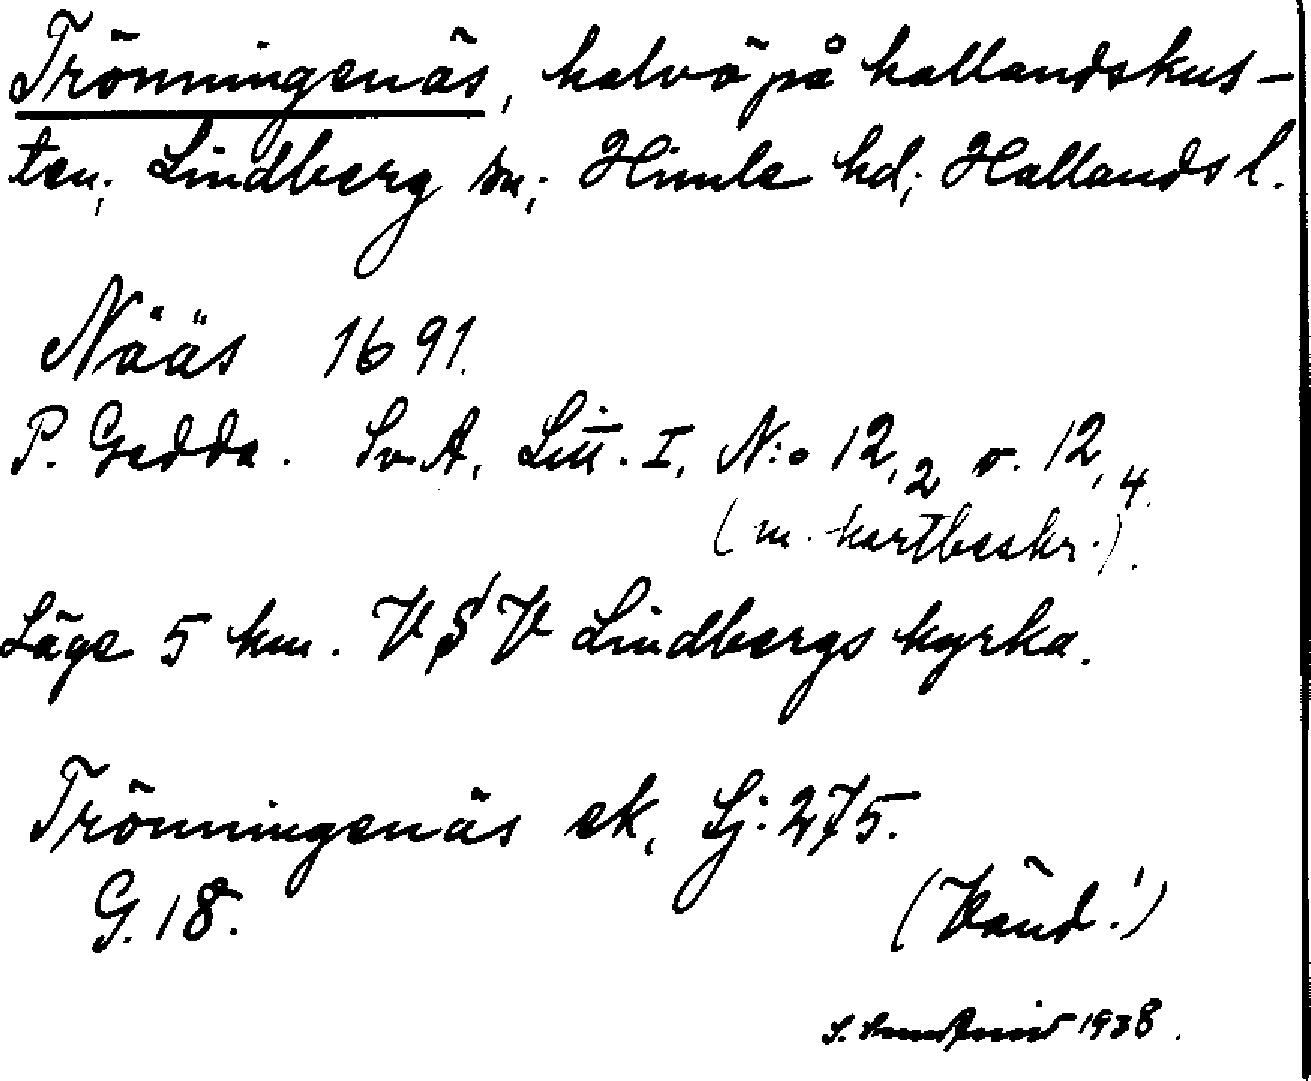 Trönningenäs, halvö på hallandskus-
ten; Lindberg sn; Himle hd; Hallands l.
Nääs 1691.
P. Gedda. Sv. A, Litt. I, N:o 12,2 o. 12,4.
(m. kartbeskr.).
Läge 5 km. V S V Lindbergs kyrka.
Trönningenäs ek, Lj: 275.
G. 18.
(Vänd!)
S. 1938.